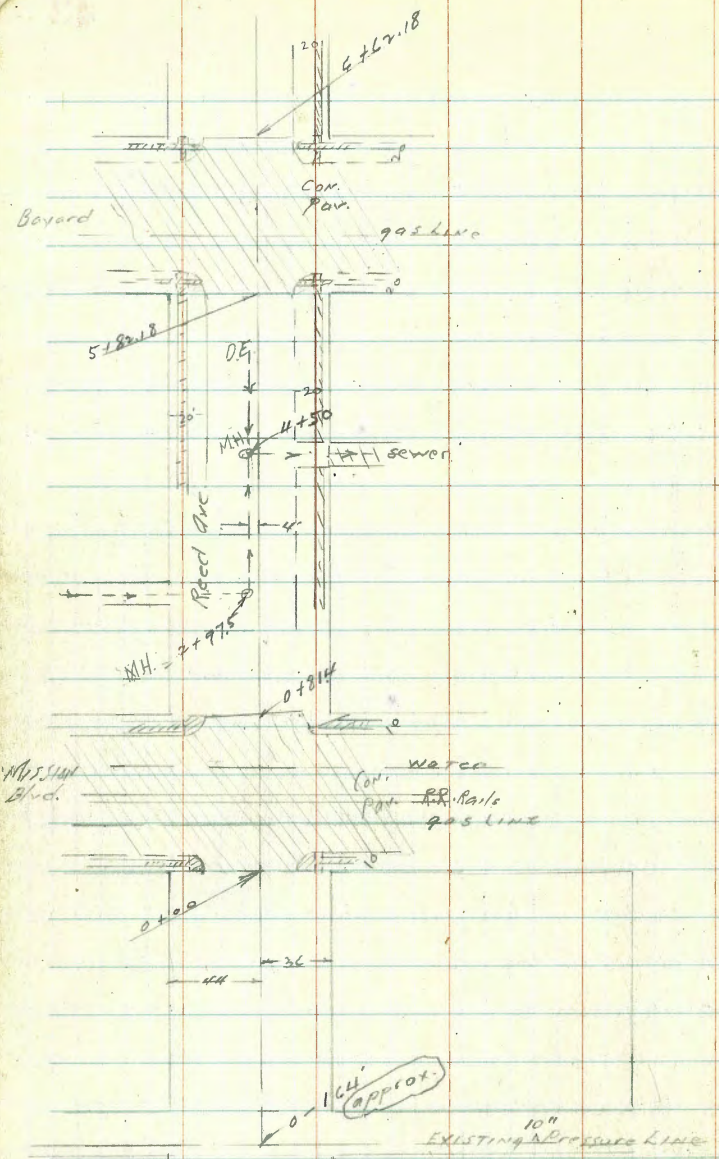 20
6+62.18
20
Con.
Pav.
Bayard
gas Line
20
5+82.18
D.E.
20
20'
4+50
M.H.
sewer
4'
Reed Ave
M.H. = 2+97.5
0+814
10
Mission
Blvd.
Water
Con.
Pav.
R.R. Rails
gas Line
10
0+00
36
44
0-164'
approx.
10"
Existing Pressure Line